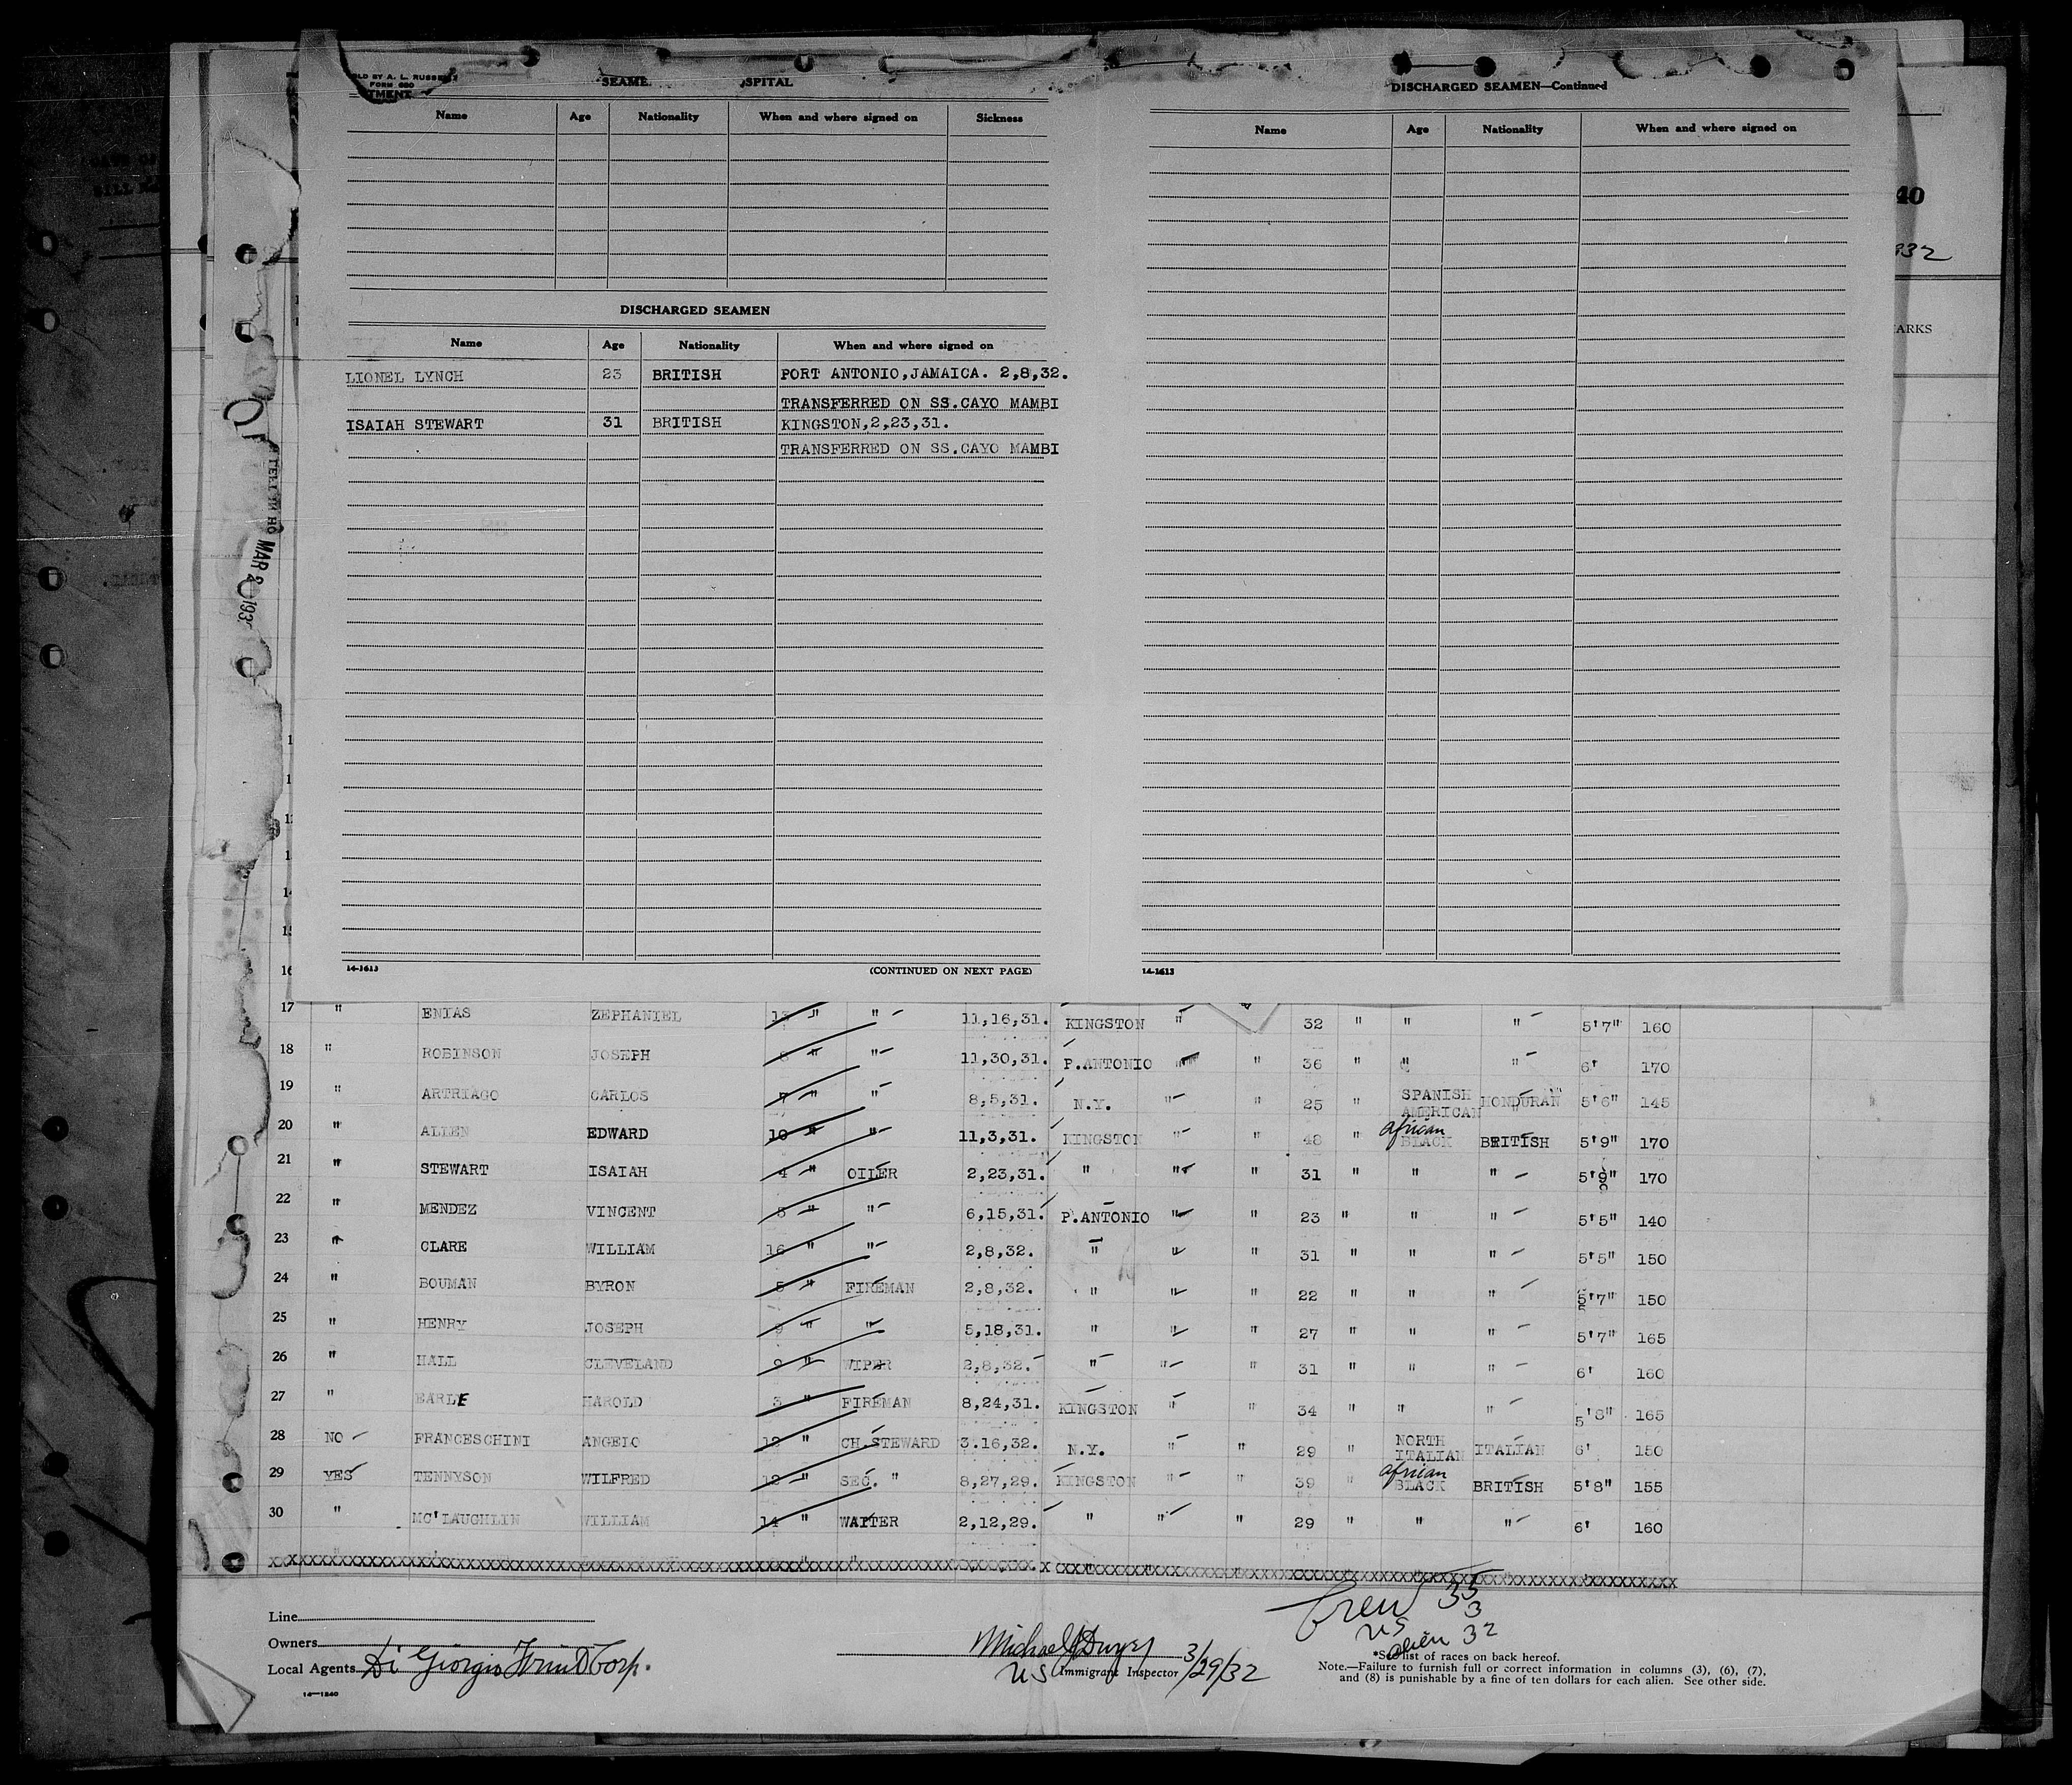 LD BY A. L. RUSSE
FORM 680
TMENT
SEAME SPITAL
Name Age Nationality When and where signed on Sickness
DISCHARGED SEAMEN
Name Age Nationality When and where signed on
LIONEL LYNCH 23 BRITISH PORT ANTONIO,JAMAICA. 2,8,32.
TRANSFERRED ON SS.CAYO MAMBI
ISAIAH STEWART 31 BRITISH KINGSTON,2,23,31.
TRANSFERRED ON SS.CAYO MAMBI
14-1613 (CONTINUED ON NEXT PAGE)
DISCHARGED SEAMEN—Continued
Name Age Nationality When and where signed on
14-1613
40
332
ARKS
MAR 2 193
17 " ENIAS ZEPHANIEL " " 11,16,31. KINGSTON " 32 " " " 5'7" 160
18 " ROBINSON JOSEPH " " 11,30,31. P.ANTONIO " " 36 " " " 6' 170
19 " ARTRIAGO CARLOS 7 " " 8,5,31. N.Y. " " 25 " SPANISH AMERICAN HONDURAN 5'6" 145
20 " ALLEN EDWARD 10 " " 11,3,31. KINGSTON " " 48 " african BLACK BRITISH 5'9" 170
21 " STEWART ISAIAH 4 " OILER 2,23,31. " " " 31 " " " 5'9" 170
22 " MENDEZ VINCENT 5 " " 6,15,31. P.ANTONIO " " 23 " " " 5'5" 140
23 " CLARE WILLIAM 16 " " 2,8,32. " " " 31 " " " 5'5" 150
24 " BOUMAN BYRON 5 " FIREMAN 2,8,32. " " " 22 " " " 5'7" 150
25 " HENRY JOSEPH 9 " " 5,18,31. " " " 27 " " " 5'7" 165
26 " HALL CLEVELAND 9 " WIPER 2,8,32. " " " 31 " " " 6' 160
27 " EARLE HAROLD 3 " FIREMAN 8,24,31. KINGSTON " " 34 " " " 5'8" 165
28 NO FRANCESCHINI ANGELO 12 " CH.STEWARD 3.16,32. N.Y. " " 29 " NORTH ITALIAN ITALIAN 6' 150
29 YES TENNYSON WILFRED 12 " SEC. " 8,27,29. KINGSTON " " 39 " african BLACK BRITISH 5'8" 155
30 " MC'LAUGHLIN WILLIAM 14 " WAITER 2,12,29. " " " 29 " " " 6' 160
Crew 35
US 3
alien 32
Line
Owners
Local Agents Di Giorgio Fruit Corp.
14—1240
Michael J Dwyer 3/29/32
US Immigrant Inspector
*See list of races on back hereof.
Note.—Failure to furnish full or correct information in columns (3), (6), (7),
and (8) is punishable by a fine of ten dollars for each alien. See other side.